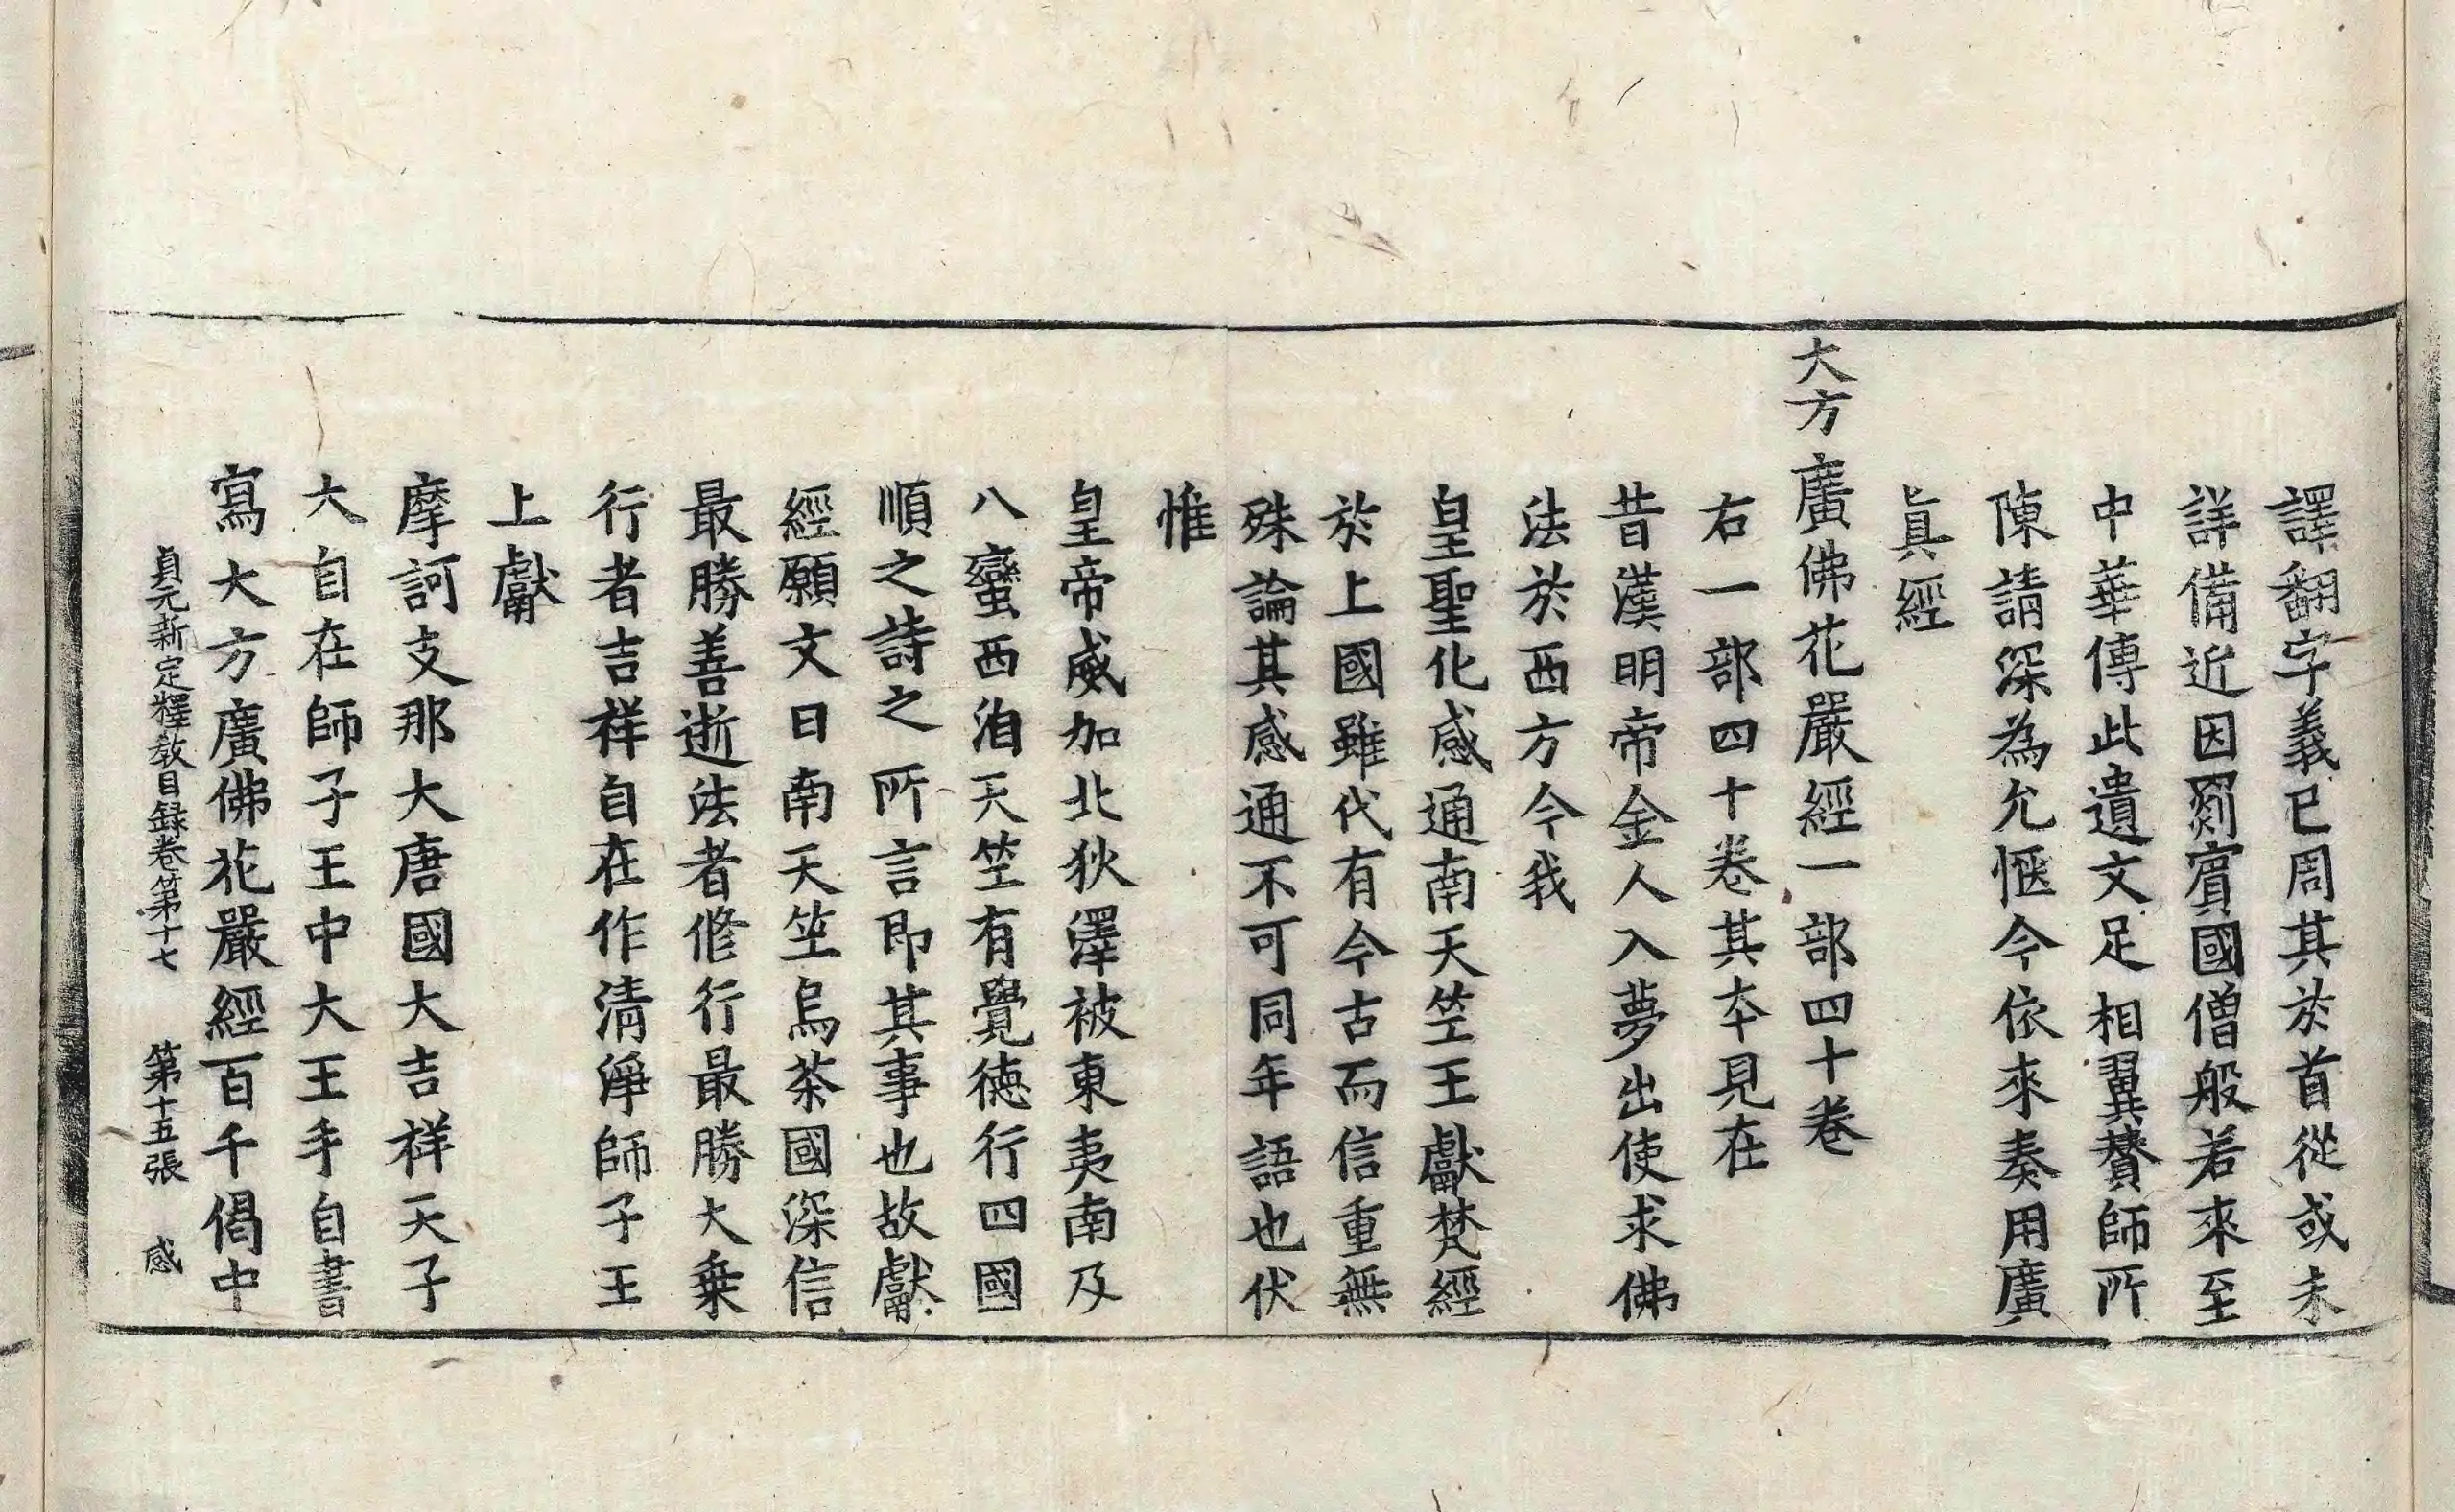 譯翻字義已周其於首從或未
詳備近因罽賓國僧般若來至
中華傳此遺文足相翼賛師所
陳請深為允愜今依來奏用廣
真經
大方廣佛花嚴經一部四十卷
右一部四十卷其夲見在
昔漢明帝金人入夢出使求佛
法於西方今我
皇聖化感通南天竺王獻梵經
於上國雖代有今古而信重無
殊論其感通不可同年語也伏
惟
皇帝威加北狄澤被東夷南及
八蠻西洎天竺有覺徳行四國
順之詩之所言即其事也故獻
經願文曰南天竺烏茶國深信
最勝善逝法者修行最勝大乗
行者吉祥自在作清淨師子王
上獻
摩訶支那大唐國大吉祥天子
大自在師子王中大王手自書
寫大方廣佛花嚴經百千偈中
貞元新定釋教目録卷第十七 第十五張 感